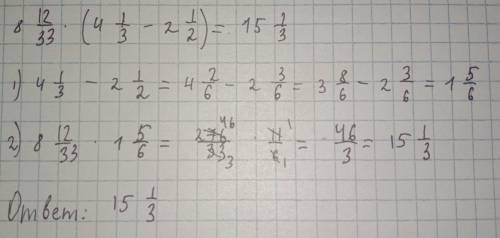 8 12/33 · (4 1/3 - 2 1/2) = 15 1/3
1) 4 1/3 - 2 1/2 = 4 2/6 - 2 3/6 = 3 8/6 - 2 3/6 = 1 5/6
2) 8 12/33 · 1 5/6 = 276 46/33 3 · 11 1/6 1 = 46/3 = 15 1/3
Ответ: 15 1/3